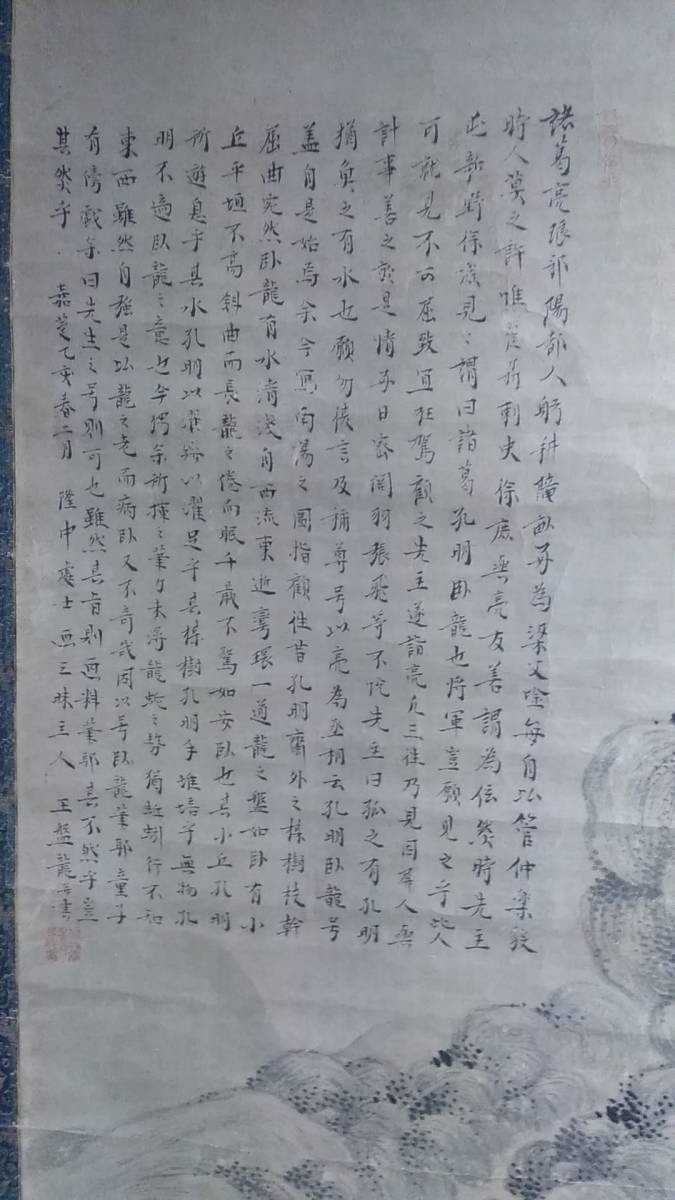 諸葛亮琅邪陽都人躬耕隴畝每為梁父唫每自比管仲樂毅
時人莫之許惟崔州刺史徐庶與亮友善謂為信然時先主
屯新野徐庶見〻謂曰諸葛孔明臥龍也將軍豈願見之乎此人
可就見不可屈致宜枉駕顧之先主遂詣亮凡三往乃見因屏人與
計事善之於是情好日密関羽張飛等不悅先主曰孤之有孔明
猶魚之有水也願勿復言及稱尊号以亮為丞相云孔明臥龍号
盖自是始焉余今冩南陽之圖指顧往昔孔明齋外之樣樹枝幹
屈曲宛然臥龍有水清淺自西流東逝彎環一道龍之盤如臥有小
丘平垣不高斜曲而長龍之倦而眠千載不驚如安臥也其小丘孔明
所遊息乎其水孔明以濯纓以濯足乎其樣樹孔明手堆培乎無物孔
明不適臥龍之意也今將余所揮之筆力未得龍蛇之勢猶蚯蚓行不知
東西雖然自強是以龍之老而病臥又不奇哉因以号臥龍筆耶童子
有傍戱余曰先生之号則可也雖然其旨則画料筆耶其不然乎豈
其然乎 嘉慶乙亥春二月 隆中處士画三昧主人 王盤龍并書